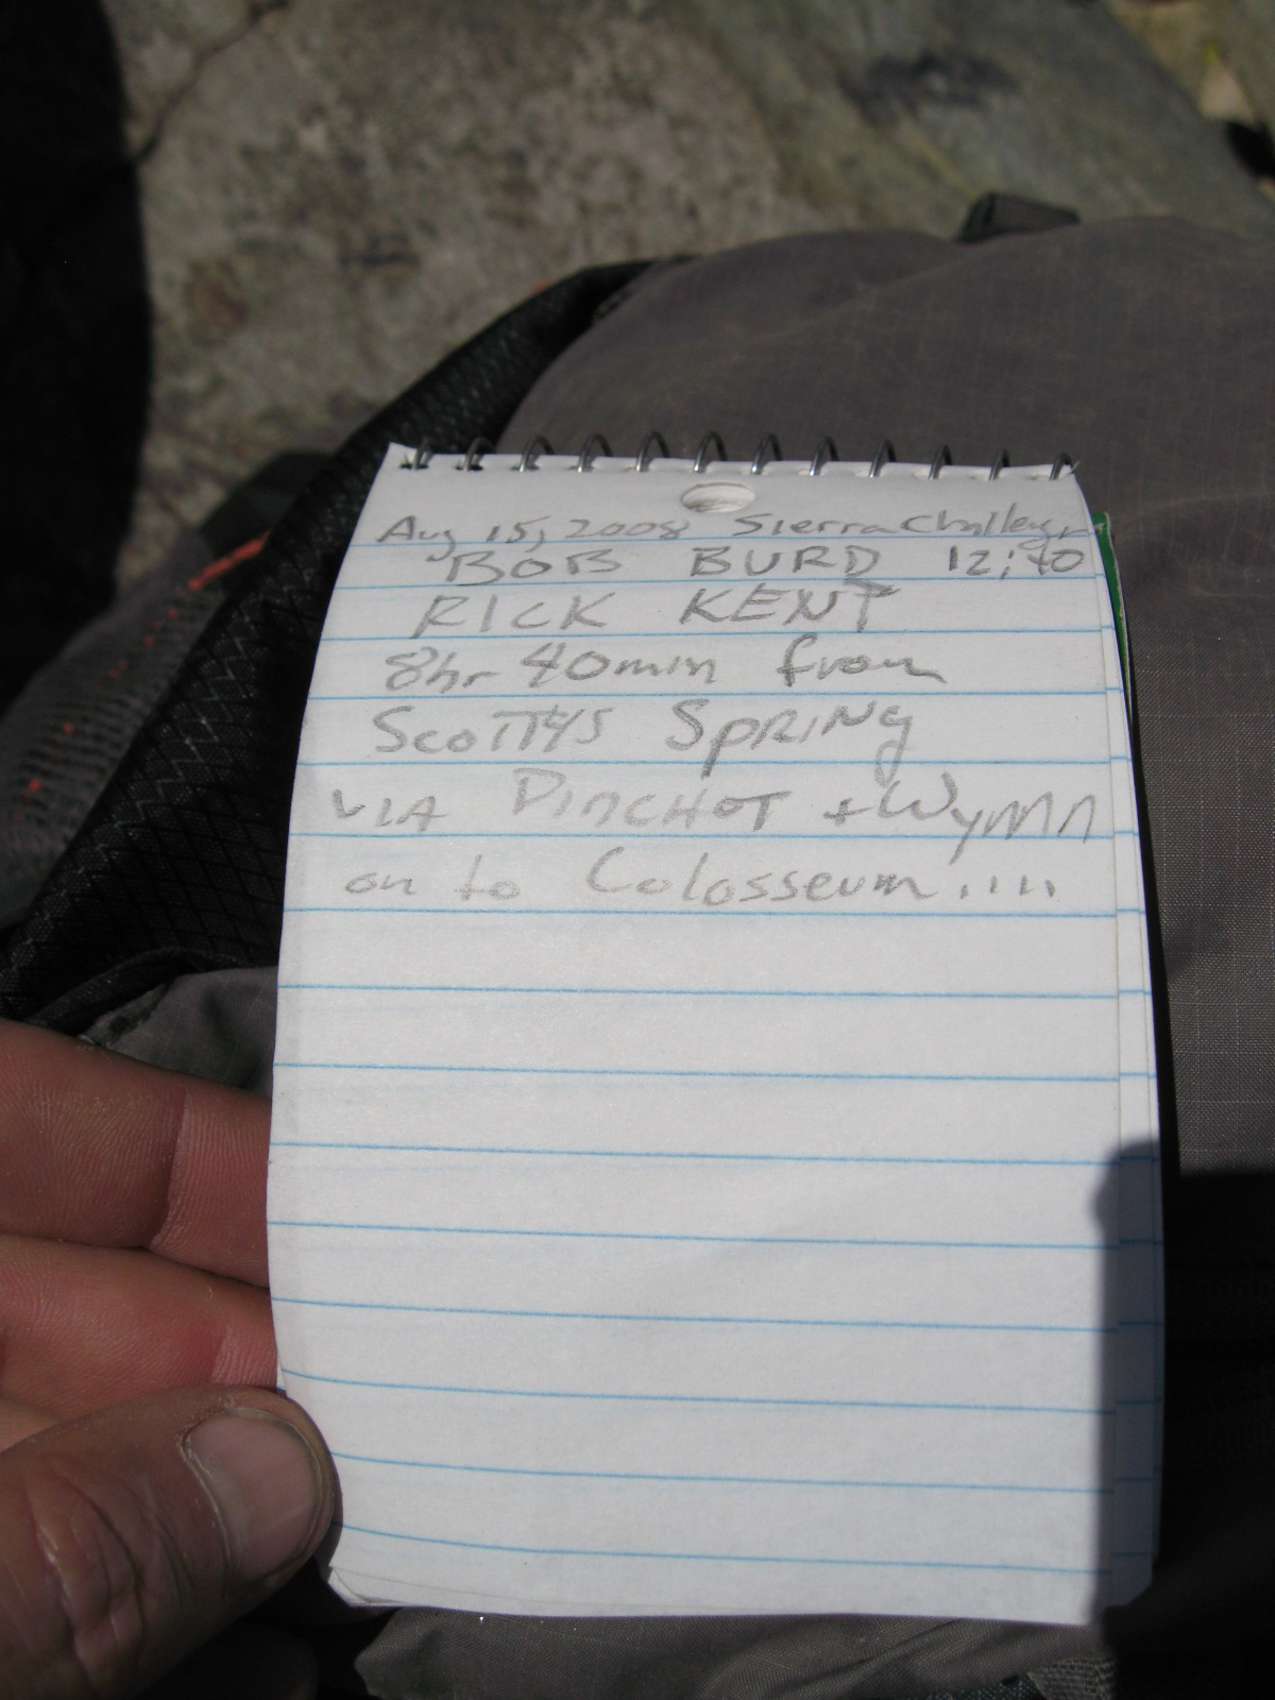 Aug 15, 2008 Sierra Challenge
BOB BURD 12:40
RICK KENT
8hr 40min from
SCOTTYS SPRING
VIA PINCHOT + WYNN
on to Colosseum.....